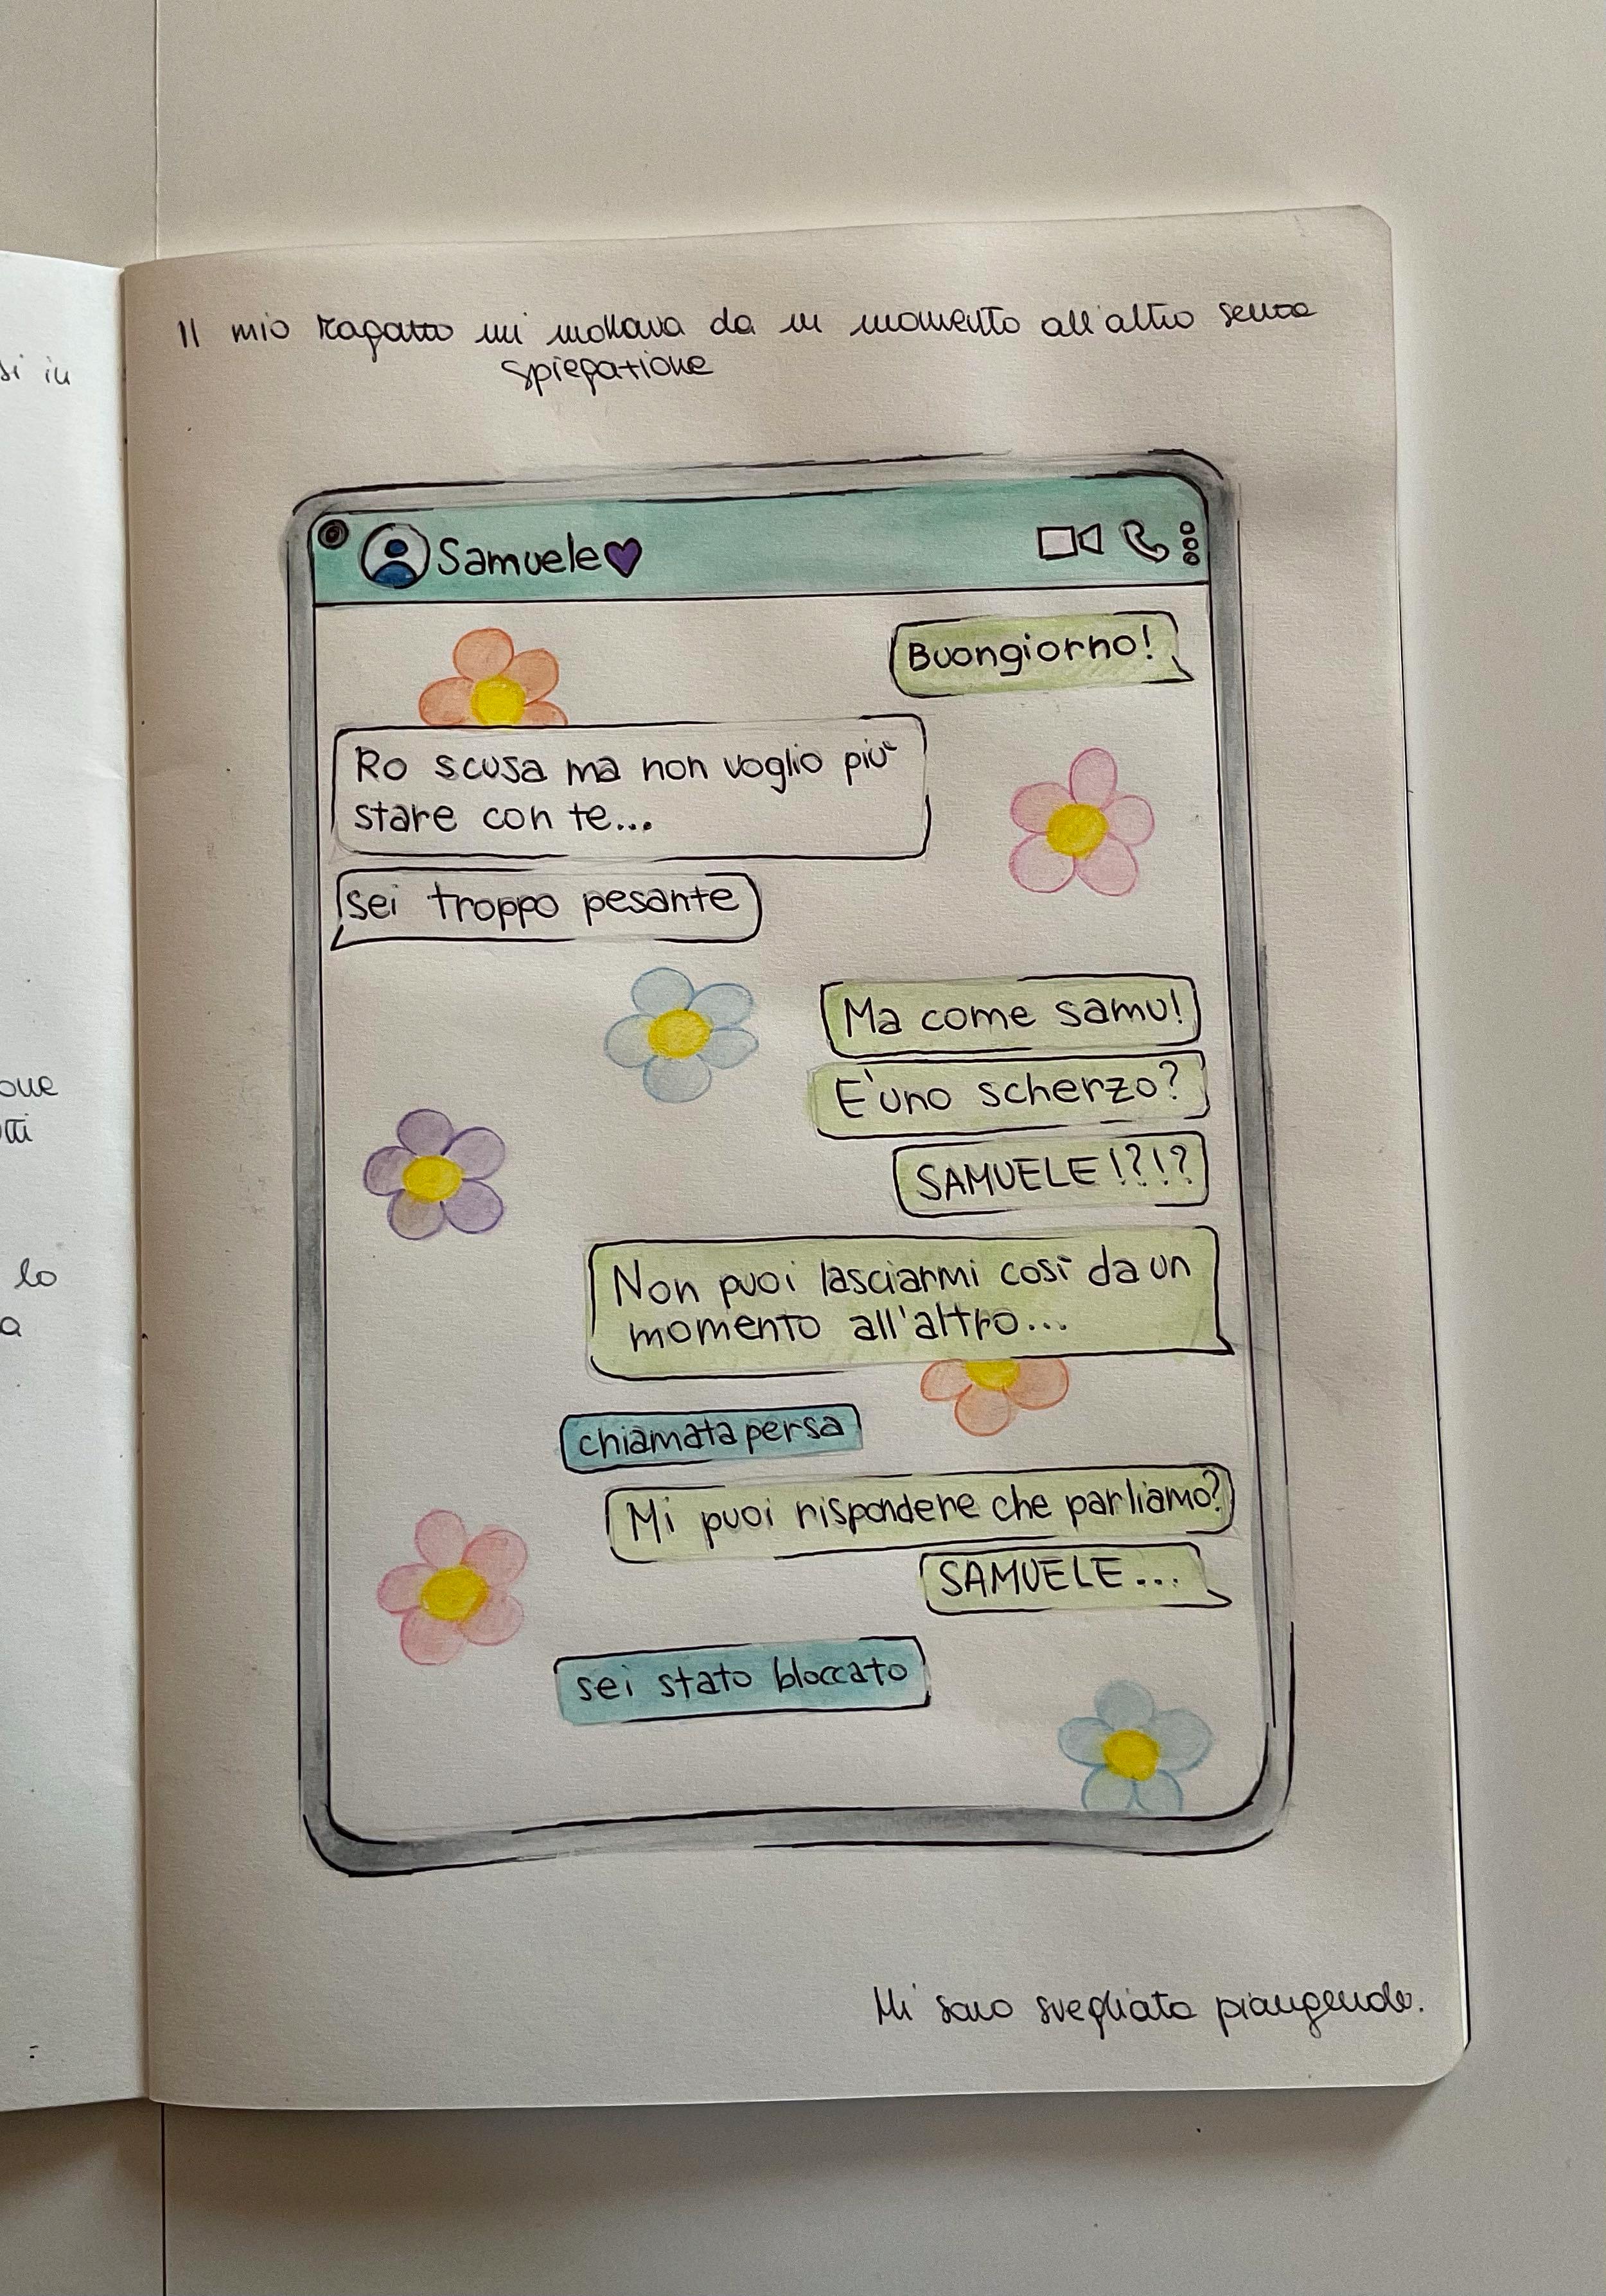 si in
Il mio ragazzo mi mollava da un momento all'altro senza
spiegazione
Samuele
Buongiorno!
Ro scusa ma non voglio più
stare con te...
sei troppo pesante
Ma come samu!
E'uno scherzo?
SAMUELE!?!?
Non puoi lasciarmi così da un
momento all'altro...
chiamata persa
Mi puoi rispondere che parliamo?
SAMUELE...
sei stato bloccato
Mi sono svegliata piangendo.
lo
a